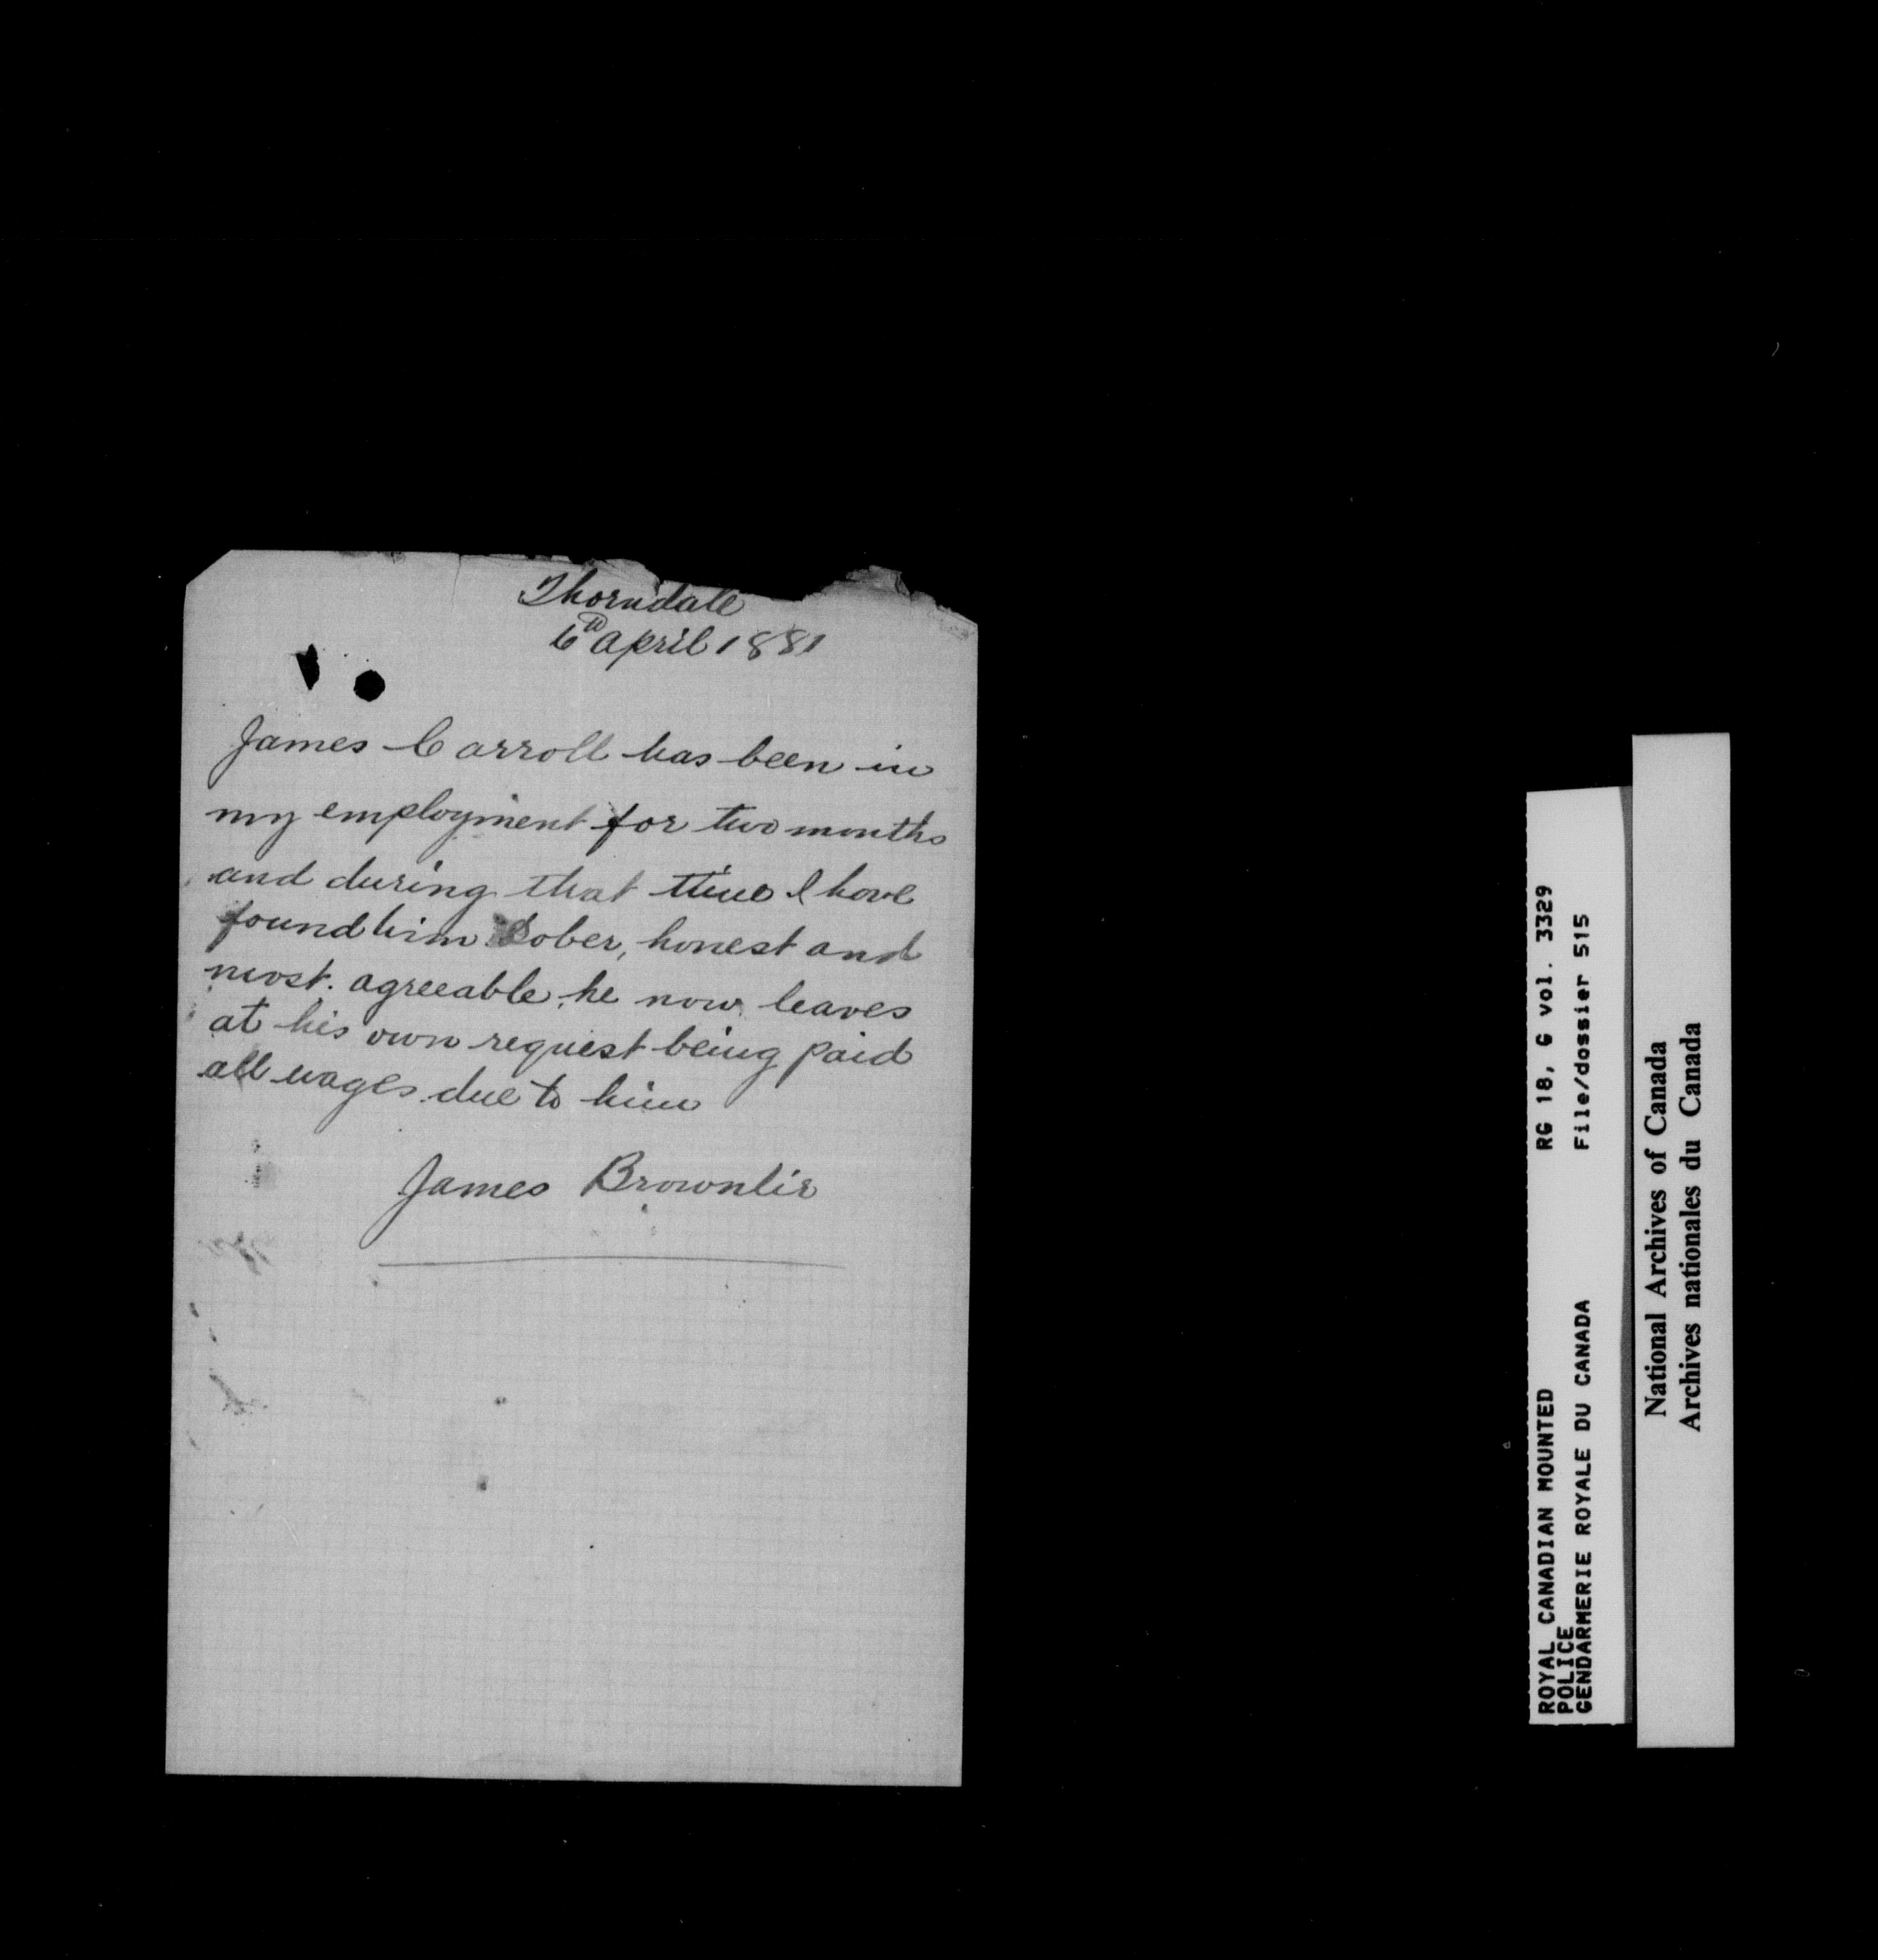 Thorndale
6th April 1881
James Carroll has been in
my employment for two months
and during that time I have
found him Sober, honest and
most agreeable, he now leaves
at his own request being paid
all wages due to him
James Brownlie
ROYAL CANADIAN MOUNTED
POLICE
GENDARMERIE ROYALE DU CANADA
RG 18, G vol. 3329
File/dossier 515
National Archives of Canada
Archives nationales du Canada